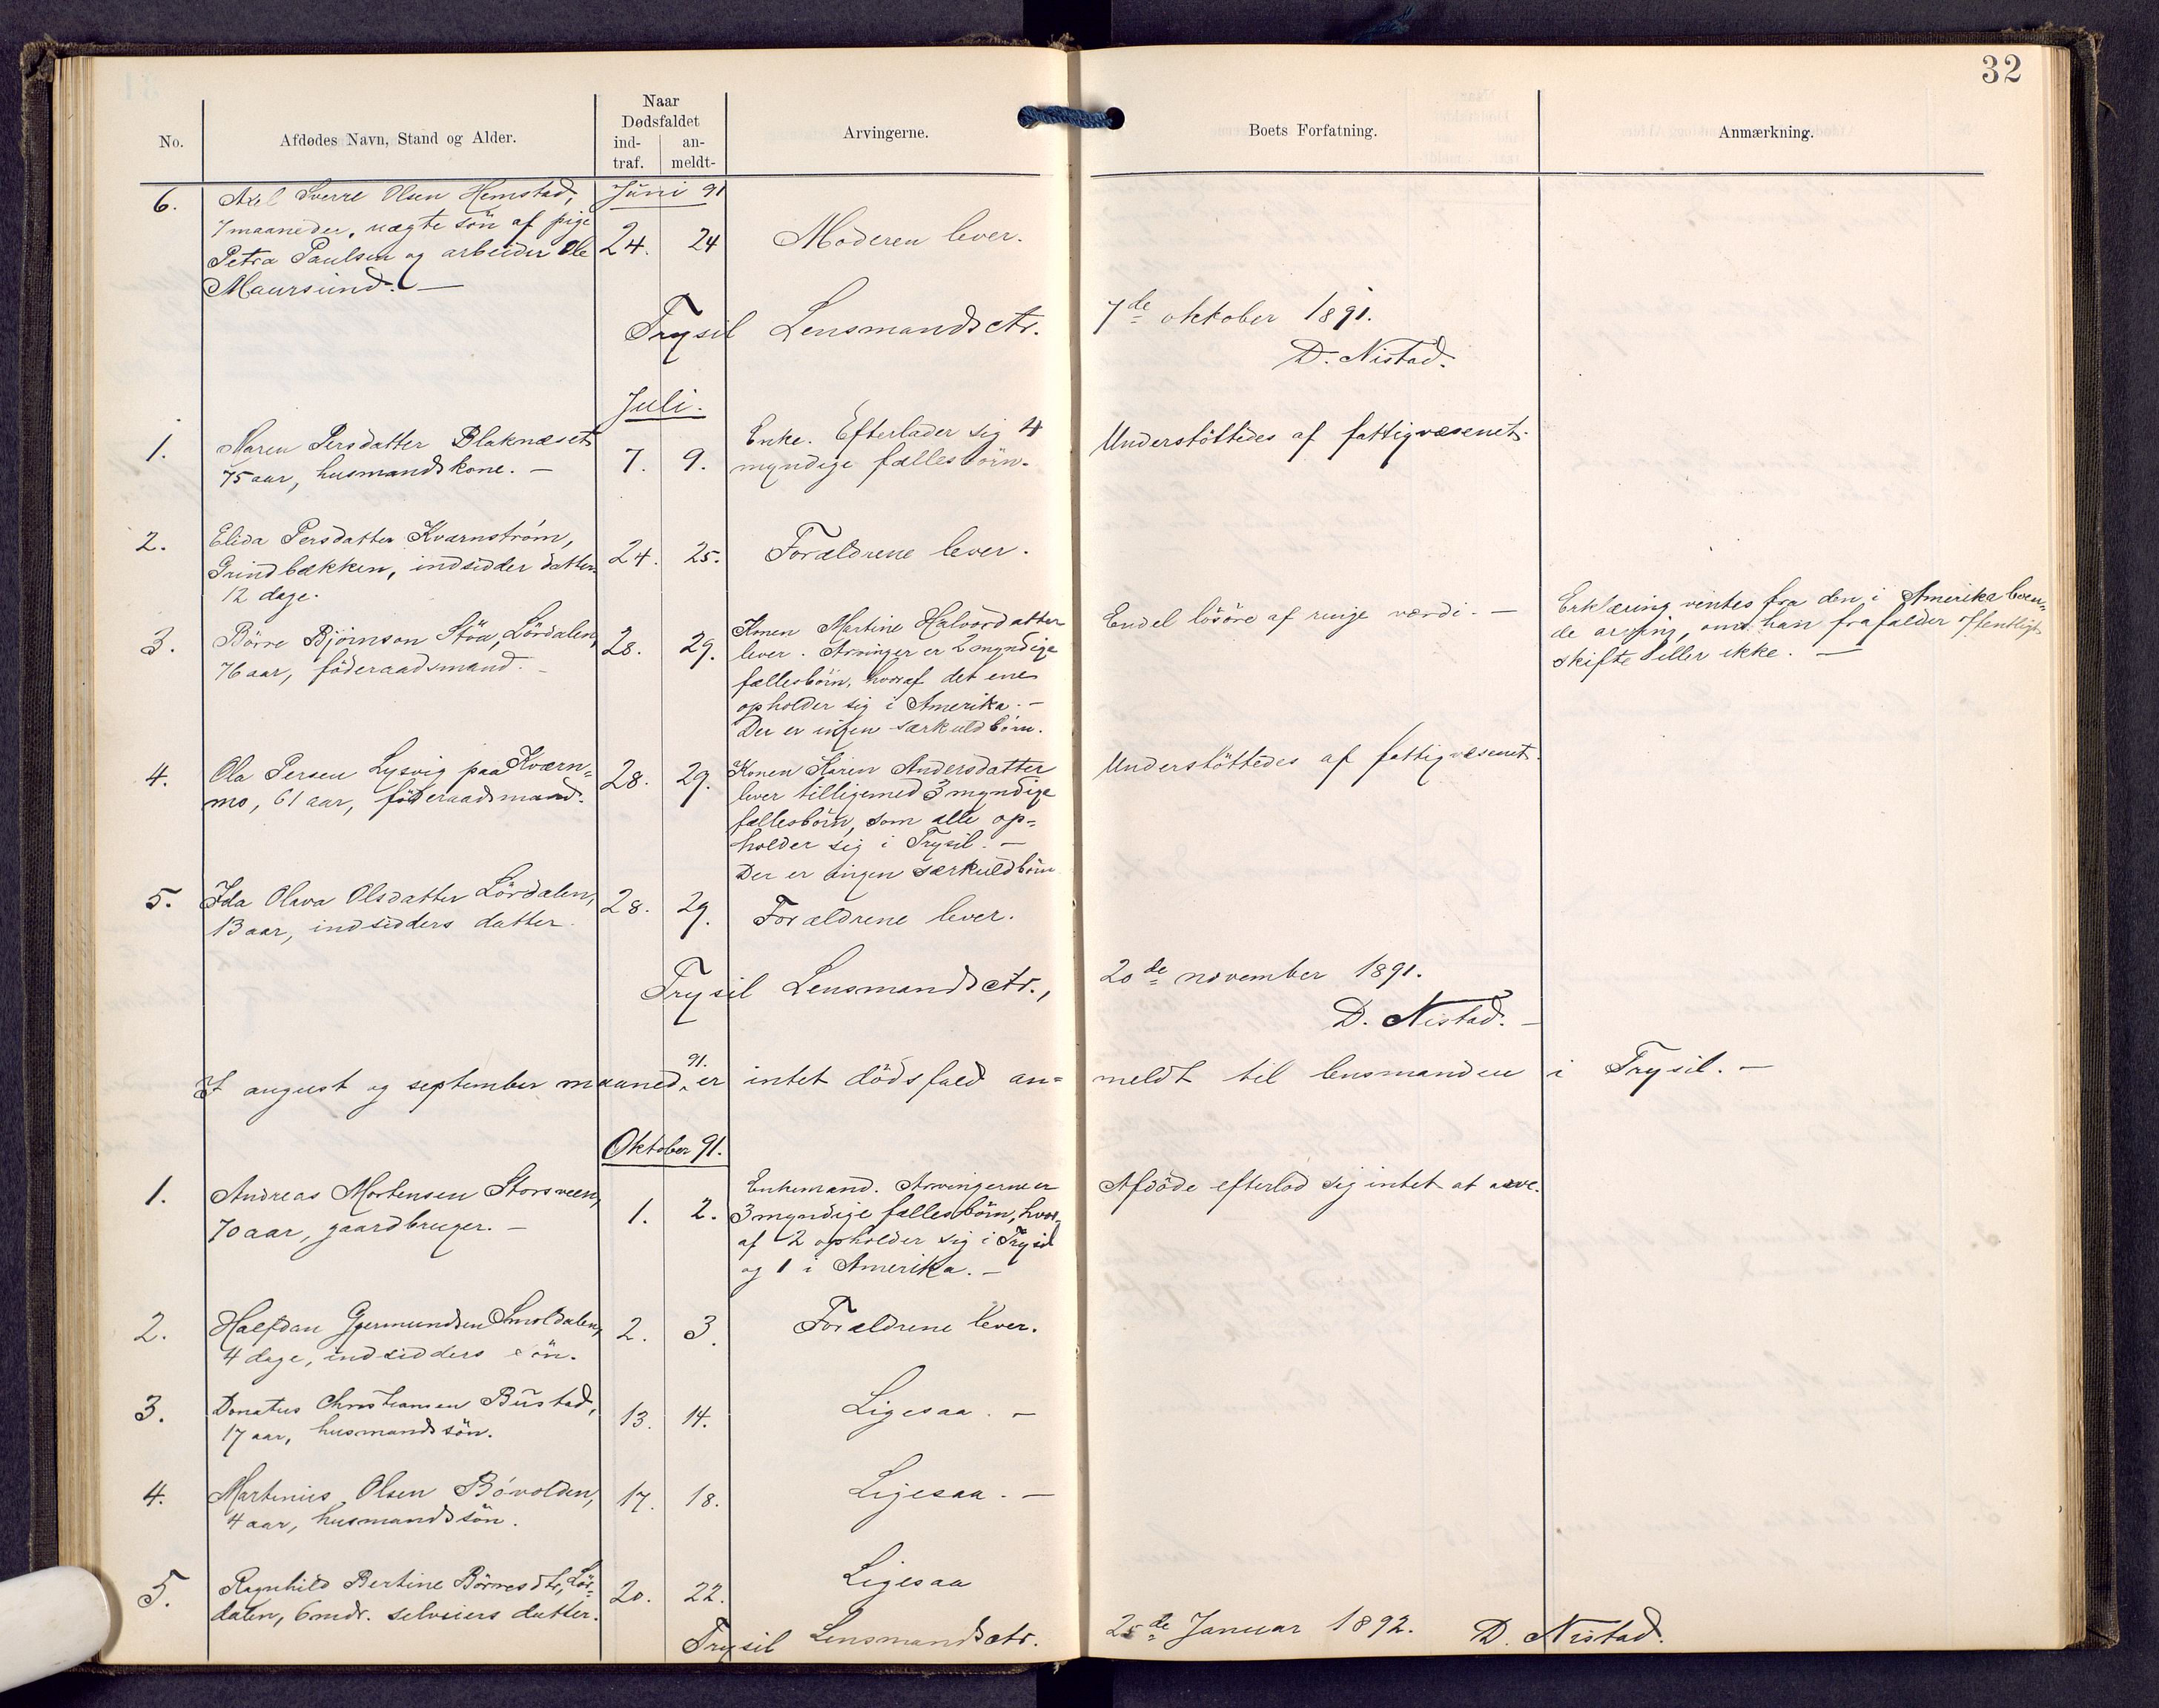 32
No.
Afdødes Navn, Stand og Alder.
Naar
Dødsfaldet
ind-
traf.
an-
meldt-
Arvingerne.
Boets Forfatning.
Anmærkning.
6.
Axel Sverre Olsen Hemstad,
7 maaneder, uægte søn af pige
Petra Paulsen og arbeider Ole
Maursund. —
Juni 91
24. 24
Moderen lever.
Trysil Lensmandsctr. 7de oktober 1891.
D. Nistad.
Juli.
1.
Maren Persdatter Blaknæset
75 aar, husmandskone. —
7. 9.
Enke. Efterlader sig 4
myndige fællesbörn.
Understöttedes af fattigvæsenet.
2.
Elida Persdatter Kvarnström,
Grindbækken, indsidder datter
12 dage.
24. 25.
Forældrene lever.
3.
Börre Björnson Stöa, Lördalen,
76 aar, föderaadsmand. —
28. 29.
Konen Martine Halvordatter
lever. Arvinger er 2 myndige
fællesbörn, hvoraf det ene
opholder sig i Amerika. —
Der er ingen særkuldbörn.
Endel lösöre af ringe værdi. —
Erklæring ventes fra den i Amerika leven-
de arving, om han frafalder offentligt
skifte eller ikke. —
4.
Ola Persen Lysvig paa Kværn-
mo, 61 aar, föderaadsmand.
28. 29.
Konen Karen Andersdatter
lever tilligemed 3 myndige
fællesbörn, som alle op-
holder sig i Trysil. —
Der er ingen særkuldbörn
Understöttedes af fattigvæsenet.
5.
Ida Olava Olsdatter Lördalen,
13 aar, indsidders datter.
28. 29.
Forældrene lever.
Trysil Lensmandsctr., 20de november 1891.
D. Nistad. —
I august og september maaned 91. er intet dödsfald an- meldt til lensmanden i Trysil. —
Oktober 91.
1.
Andreas Mortensen Storsveen,
70 aar, gaardbruger. —
1. 2.
Enkemand. Arvingerne er
3 myndige fællesbörn, hvor-
af 2 opholder sig i Trysil
og 1 i Amerika. —
Afdöde efterlod sig intet at arve.
2.
Halfdan Gjermundsen Smoldalen,
4 dage, indsidders sön.
2. 3.
Forældrene lever.
3.
Donatus Christiansen Bustad,
17 aar, husmandssön.
13. 14.
Ligesaa. —
4.
Martinius Olsen Bövolden,
4 aar, husmandssön.
17. 18.
Ligesaa. —
5.
Ragnhild Bertine Börresdtr, Lör-
dalen, 6 mdr. selveiers datter.
20. 22.
Ligesaa
Trysil Lensmandsctr. 25de Januar 1892. D. Nistad.